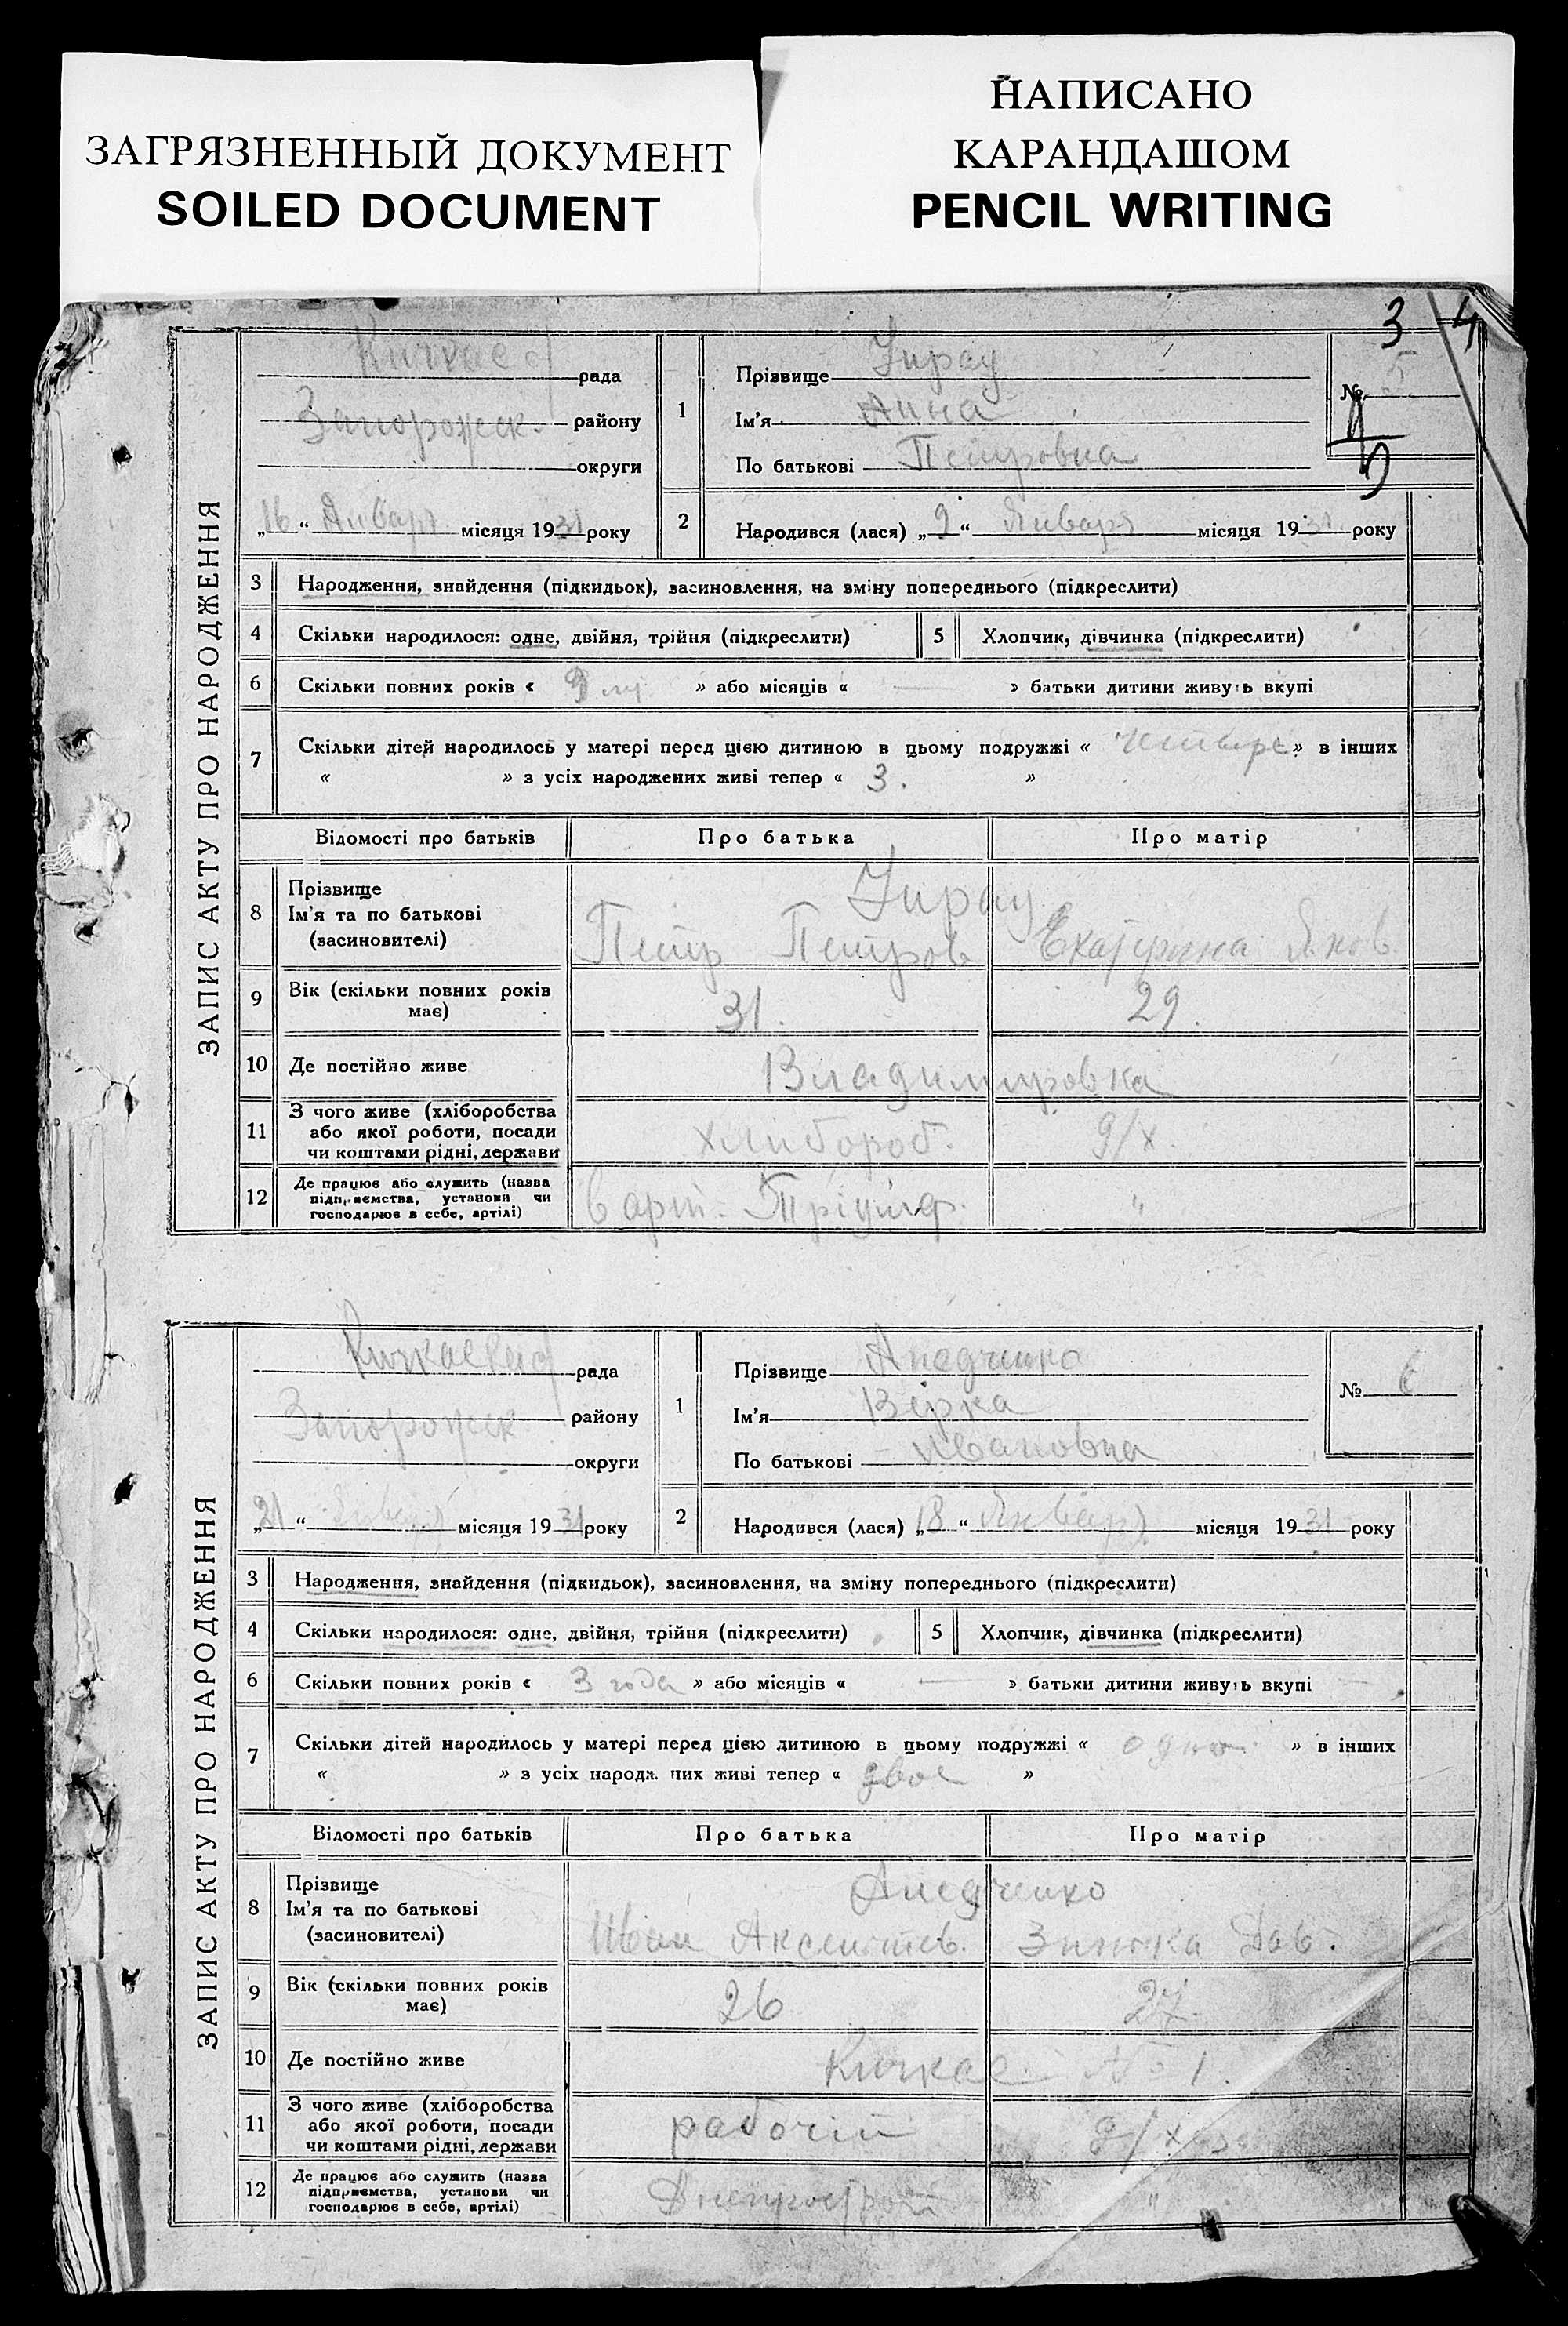 ЗАГРЯЗНЕННЫЙ ДОКУМЕНТ
SOILED DOCUMENT
НАПИСАНО
КАРАНДАШОМ
PENCIL WRITING
3 4
ЗАПИС АКТУ ПРО НАРОДЖЕННЯ
Кичкас рада
Запорожск. району
округи
„16“ Январ місяця 1931 року
1 Прізвище Унрау
Ім'я Анна
По батькові Петровна
№ 5
2 Народився (лася) „9“ Января місяця 1931 року
3 Народження, знайдення (підкидьок), засиновлення, на зміну попереднього (підкреслити)
4 Скільки народилося: одне, двійня, трійня (підкреслити) 5 Хлопчик, дівчинка (підкреслити)
6 Скільки повних років « 9 » або місяців « — » батьки дитини живуть вкупі
7 Скільки дітей народилось у матері перед цією дитиною в цьому подружжі « » в інших
« » з усіх народжених живі тепер « 3. »
Відомості про батьків Про батька Про матір
8 Прізвище
Ім'я та по батькові
(засиновителі)
Унрау
Петр Петров Екатерина Яков
9 Вік (скільки повних років
має) 31. 29.
10 Де постійно живе Владимировка
11 З чого живе (хліборобства
або якої роботи, посади
чи коштами рідні, держави
хлибороб. д/х
12 Де працює або служить (назва
підприємства, установи чи
господарює в себе, артілі)
в арт. Тріумф. "
ЗАПИС АКТУ ПРО НАРОДЖЕННЯ
рада
Запорожск району
округи
„21“ Январ місяця 1931 року
1 Прізвище
Ім'я Вірка
По батькові Ивановна
№ 6
2 Народився (лася) „18“ Январ місяця 1931 року
3 Народження, знайдення (підкидьок), засиновлення, на зміну попереднього (підкреслити)
4 Скільки народилося: одне, двійня, трійня (підкреслити) 5 Хлопчик, дівчинка (підкреслити)
6 Скільки повних років « 3 года » або місяців « — » батьки дитини живуть вкупі
7 Скільки дітей народилось у матері перед цією дитиною в цьому подружжі « одно » в інших
« » з усіх народж них живі тепер « двое »
Відомості про батьків Про батька Про матір
8 Прізвище
Ім'я та по батькові
(засиновителі)
Иван Аксентев. Зинька Дав.
9 Вік (скільки повних років
має) 26
10 Де постійно живе Кичкас № 1.
11 З чого живе (хліборобства
або якої роботи, посади
чи коштами рідні, держави
рабочій
12 Де працює або служить (назва
підприємства, установи чи
господарює в себе, артілі)
Днепрострой "